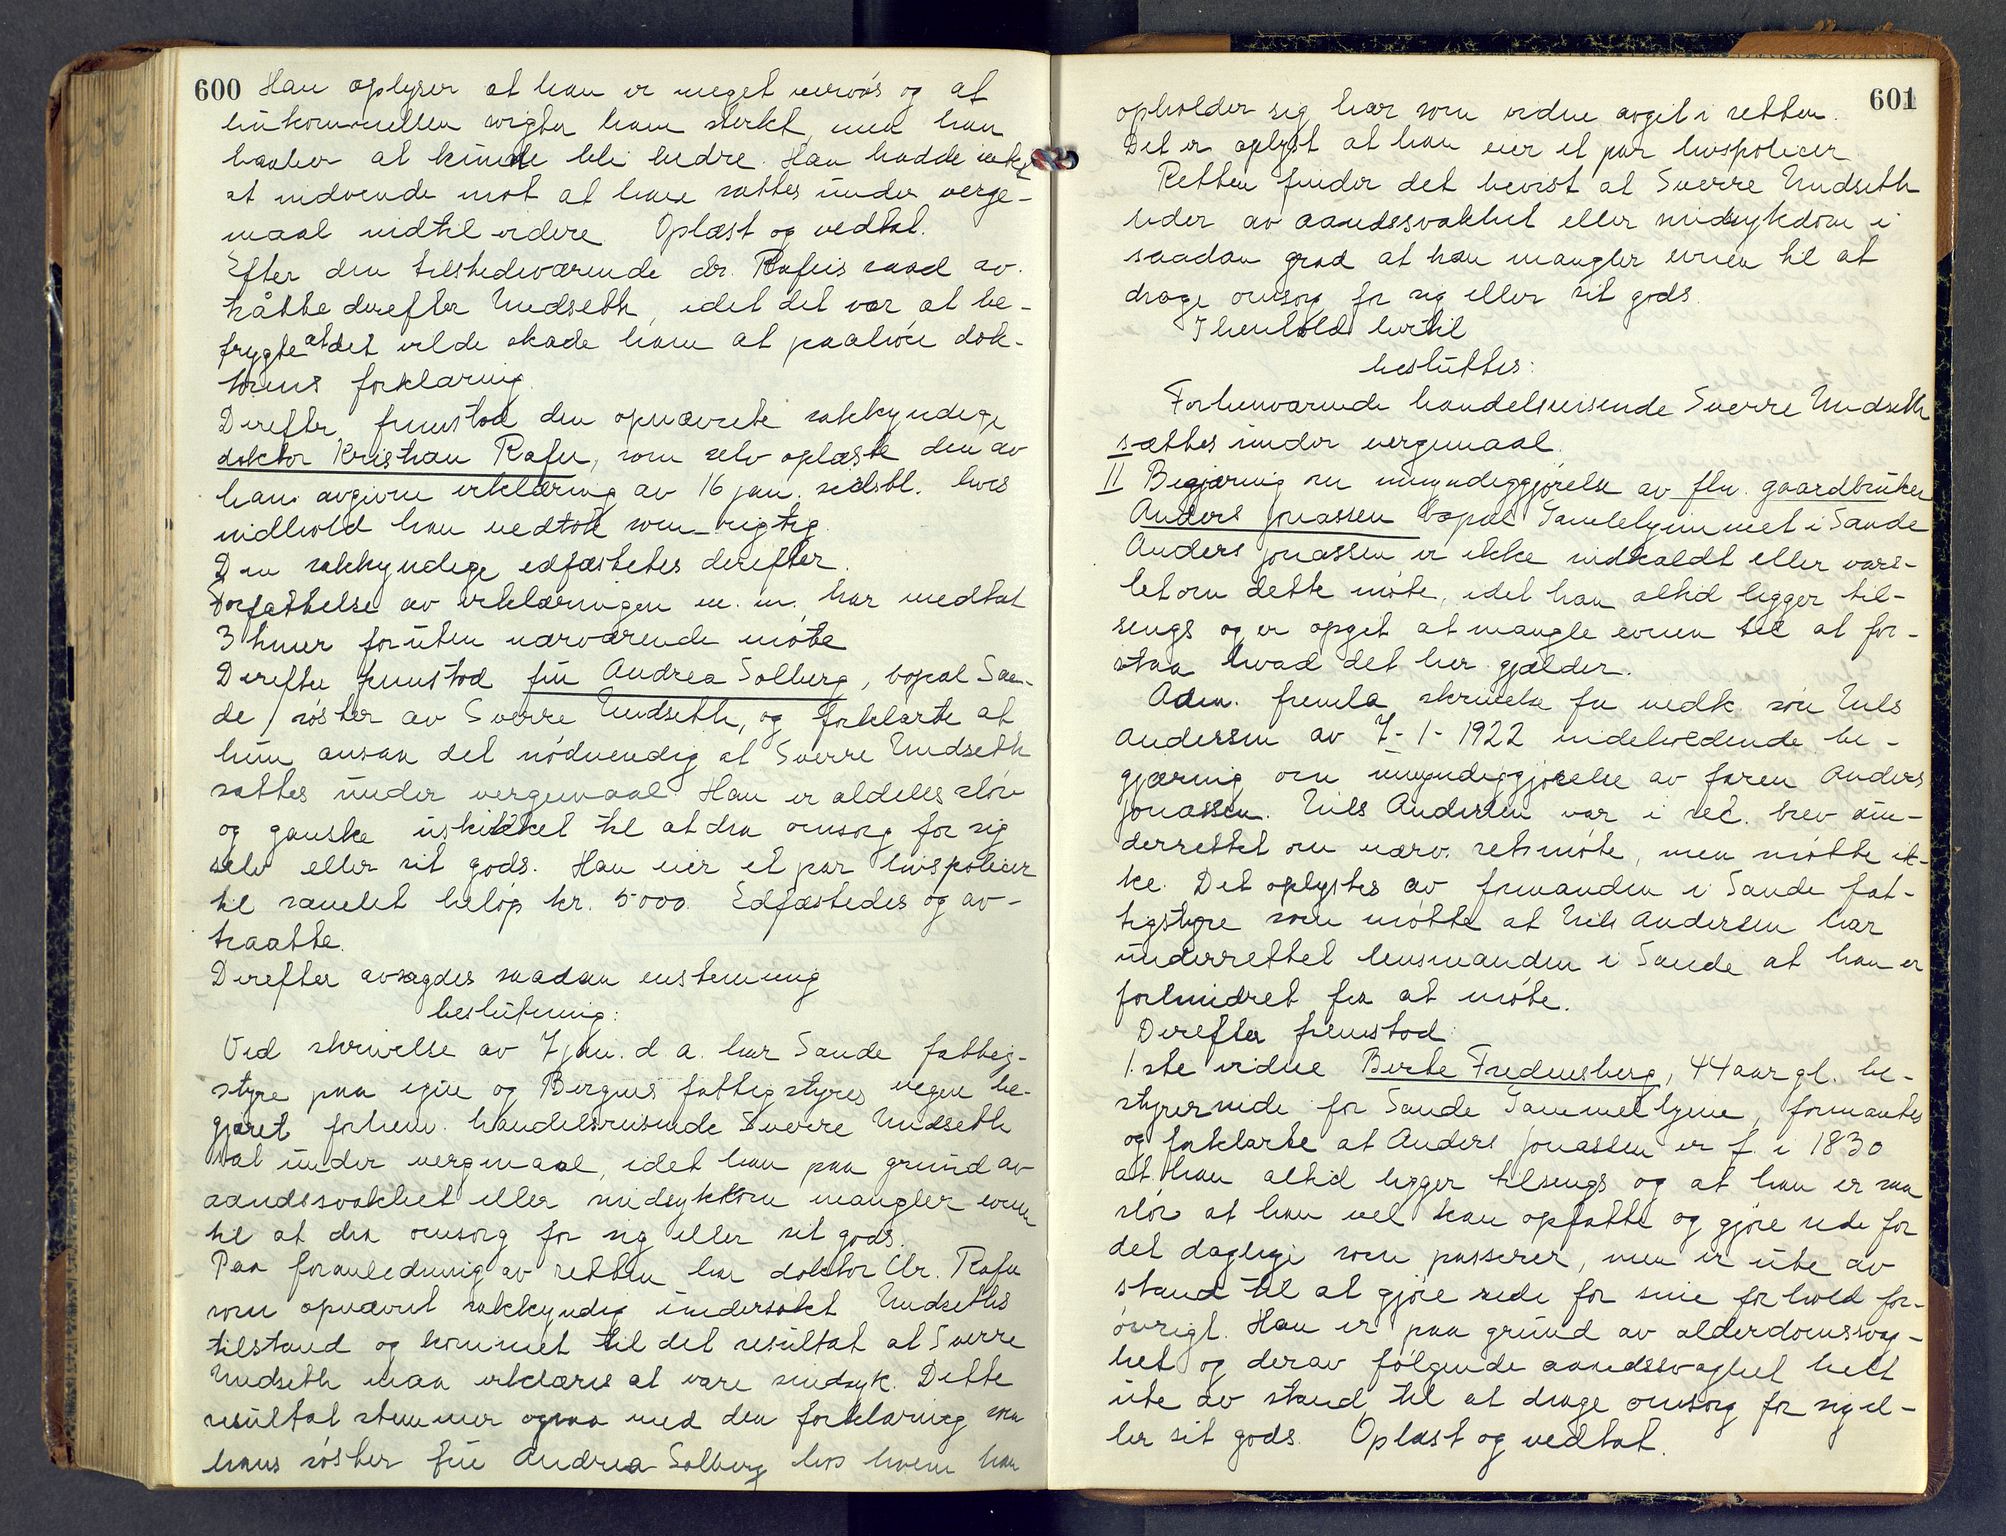 600 Han oplyser at han er meget nervøs og at
innkommelsen svigter ham sterkt, men han
haaber at kunde bli bedre. Han hadde intet
at indvende mot at have sættes under verge-
maal indtil videre Oplæst og vedtat.
Efter den tilstedeværende dr. Rafns raad av-
tråtte derefter Undseth, idet det var at be-
frygte at det vilde skade ham at paahøre dok-
torens forklaring.
Derefter fremstod den opnævnte sakkyndige
doktor Kristian Rafn, som selv oplæste den av
ham avgivne erklæring av 16 jan. sidstl. hvis
indhold han vedtok som rigtig.
Den sakkyndige edfæstetes derefter.
Forfattelse av erklæringen m. m. har medtat
3 timer foruten nærværende møte
Derefter fremstod frue Andrea Solberg, bopæl San-
de, søster av Sverre Undseth, og forklarte at
hun ansaa det nødvendig at Sverre Undseth
sættes under vergemaal. Han er aldeles sløv
og ganske uskikket til at dra omsorg for sig
selv eller sit gods. Han eier et par livspolicer
til samlet beløp kr. 5000. Edfæstedes og av-
traatte.
Derefter avsagdes saadan enstemmig
beslutning:
Ved skrivelse av 7 jan. d. a. har Sande fattig-
styre paa egne og Bergens fattigstyres vegne be-
gjæret forhenv. handelsreisende Sverre Undseth
sat under vergemaal, idet han paa grund av
aandssvakhet eller sindsykdom mangler evnen
til at dra omsorg for sig eller sit gods.
Paa foranledning av retten har doktor Chr. Rafn
som opnævnt sakkyndig undersøkt Undseths
tilstand og kommet til det resultat at Sverre
Undseth maa erklæres at være sindsyk. Dette
resultat stemmer ogsaa med den forklaring som
hans søster frue Andrea Solberg hos hvem han
601
opholder sig har som vidne avgit i retten.
Det er oplyst at han eier et par livspolicer
Retten finder det bevist at Sverre Undseth
lider av aandssvakhet eller sindsykdom i
saadan grad at han mangler evnen til at
drage omsorg for sig eller sit gods.
I henhold hertil
besluttes:
Forhenværende handelsreisende Sverre Undseth
sættes under vergemaal.
II Begjæring om umyndiggjørelse av fhv. gaardbruker
Anders Jonassen bopæl Gamlehjemmet i Sande
Anders Jonassen er ikke indkaldt eller vars-
let om dette møte, idet han altid ligger til-
sengs og er opgit at mangle evnen til at for-
staa hvad det her gjælder.
Adm. fremla skrivelse fra vedk. søn Nils
Andersen av 7-1-1922 indeholdende be-
gjæring om umyndiggjørelse av faren Anders
Jonassen. Nils Andersen var i rec. brev un-
derrettet om nærv. retsmøte, men møtte ik-
ke. Det oplystes av formanden i Sande fat-
tigstyre som møtte at Nils Andersen har
underrettet lensmanden i Sande at han er
forhindret fra at møte.
Derefter fremstod:
1.ste vidne Berte Fredensberg, 44 aar gl. be-
styrerinde for Sande Gammelhjem, formantes
og forklarte at Anders Jonassen er f. i 1830
at han altid ligger tilsengs og at han er saa
sløv at han vel kan opfatte og gjøre rede for
det daglige som passerer, men er ute av
stand til at gjøre rede for sine forhold for-
øvrigt. Han er paa grund av alderdomssvag-
het og derav følgende aandssvaghet helt
ute av stand til at drage omsorg for sig el-
ler sit gods. Oplæst og vedtat.